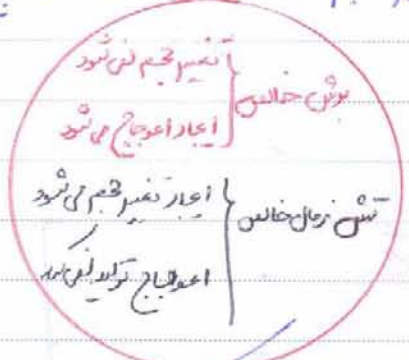 برش خالص
تغییر حجم نمی شود
ایجاد اعوجاج می شود
تنش نرمال خالص
ایجاد تغییر حجم می شود
اعوجاج تولید نمی کند